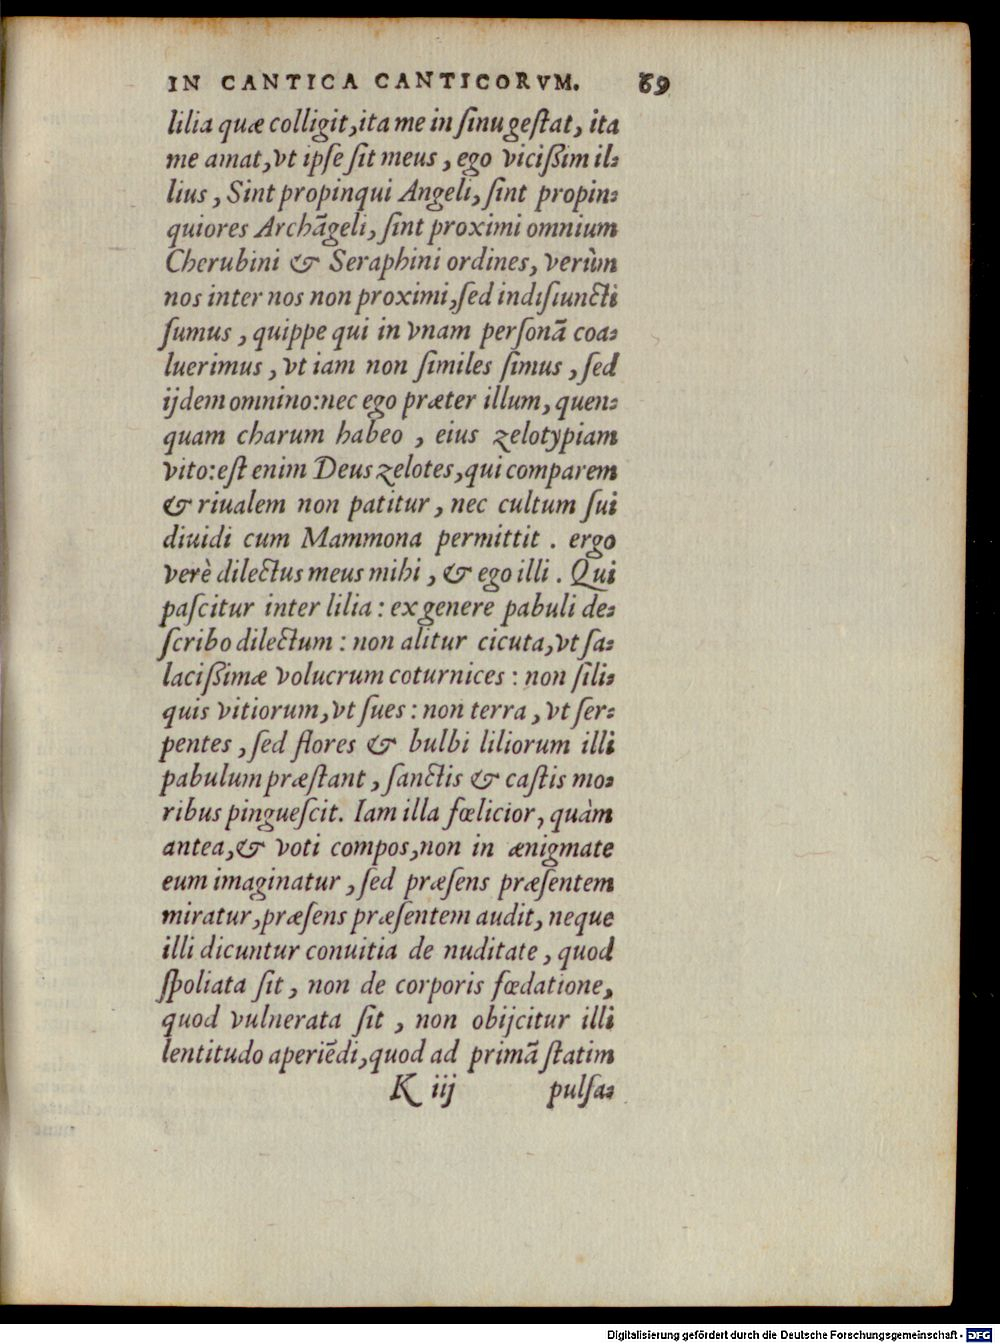 IN CANTICA CANTICORVM. 69
lilia quæ colligit, ita me in ſinu geſtat, ita
me amat, vt ipſe ſit meus, ego viciſſim il⸗
lius, Sint propinqui Angeli, ſint propin⸗
quiores Archãgeli, ſint proximi omnium
Cherubini & Seraphini ordines, verùm
nos inter nos non proximi, ſed indiſiuncti
ſumus, quippe qui in vnam perſonã coa⸗
luerimus, vt iam non ſimiles ſimus, ſed
ijdem omnino: nec ego præter illum, quen⸗
quam charum habeo, eius zelotypiam
vito: eſt enim Deus zelotes, qui comparem
& riualem non patitur, nec cultum ſui
diuidi cum Mammona permittit. ergo
verè dilectus meus mihi, & ego illi. Qui
paſcitur inter lilia: ex genere pabuli de⸗
ſcribo dilectum: non alitur cicuta, vt ſa⸗
laciſſimæ volucrum coturnices: non ſili⸗
quis vitiorum, vt ſues: non terra, vt ſer⸗
pentes, ſed flores & bulbi liliorum illi
pabulum præſtant, ſanctis & caſtis mo⸗
ribus pingueſcit. Iam illa fœlicior, quàm
antea, & voti compos, non in ænigmate
eum imaginatur, ſed præſens præſentem
miratur, præſens præſentem audit, neque
illi dicuntur conuitia de nuditate, quod
ſpoliata ſit, non de corporis fœdatione,
quod vulnerata ſit, non obijcitur illi
lentitudo aperiẽdi, quod ad primã ſtatim
K iij pulſa⸗
Digitalisierung gefördert durch die Deutsche Forschungsgemeinschaft - DFG